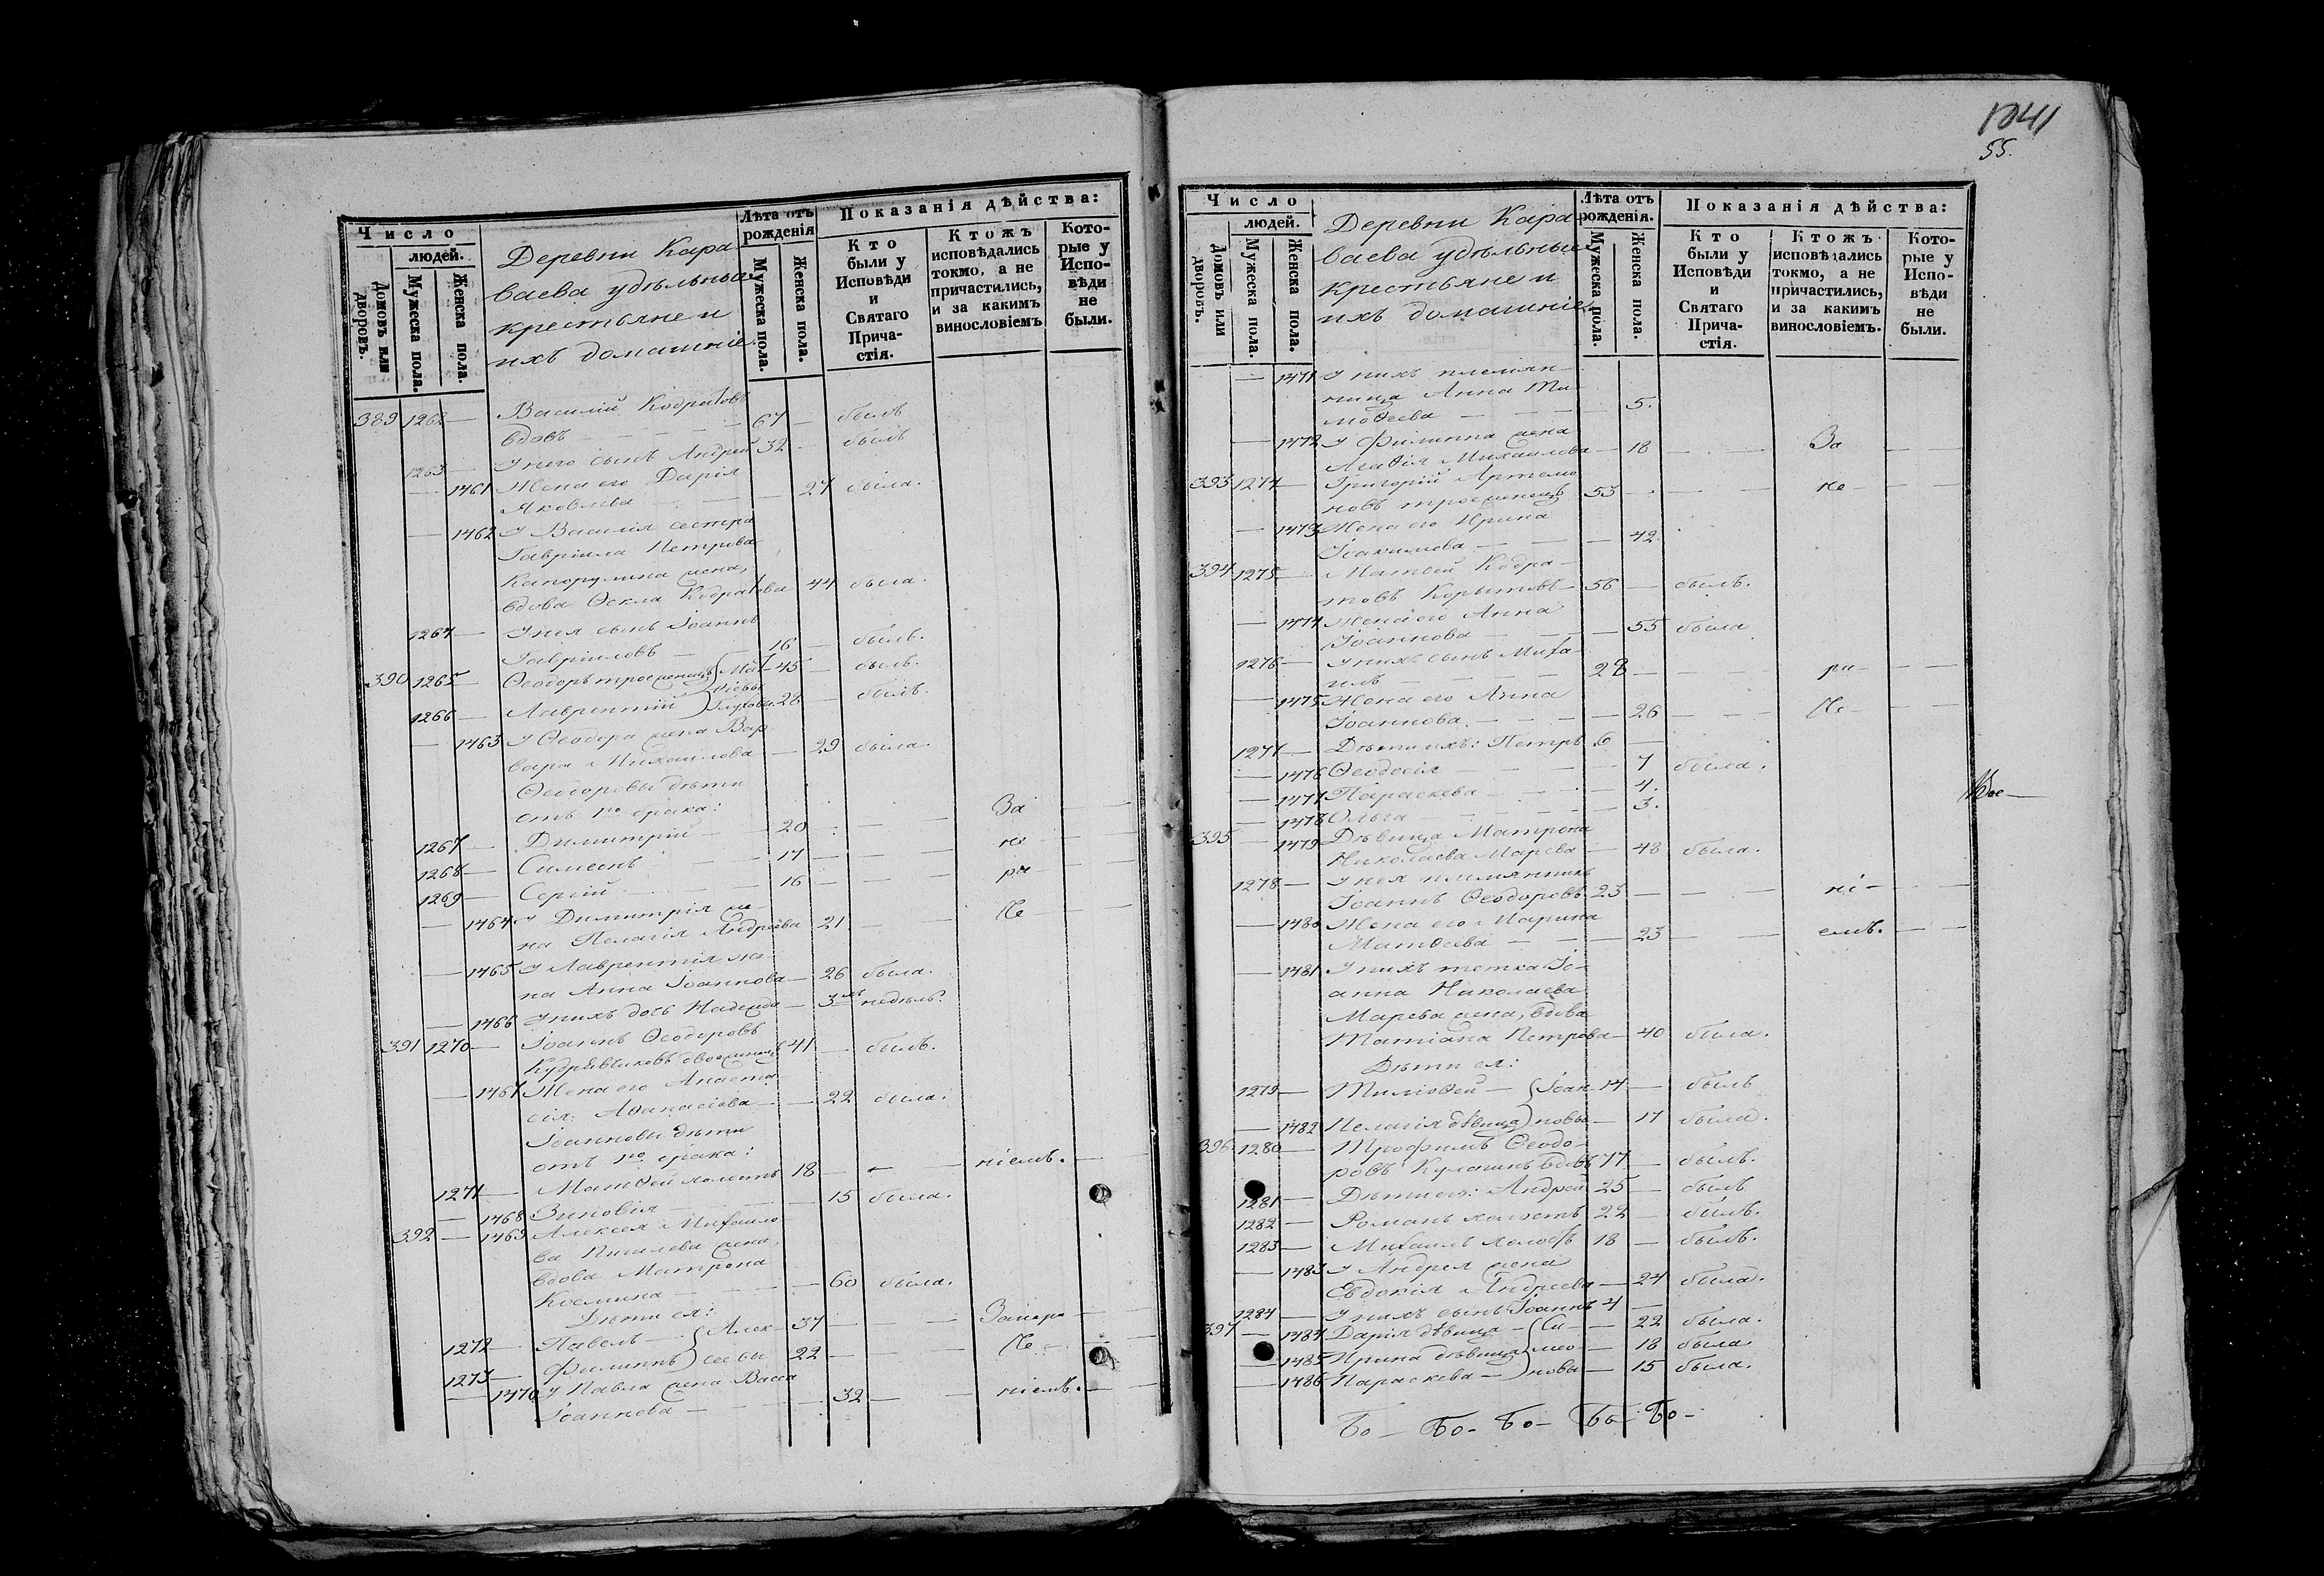 1041
55.
Число
людей.
Домовъ или дворовъ.
Мужеска пола.
Женска пола.
Деревни Кара-
ваева удѣльные
крестьяне и
ихъ домашніе
Лѣта отъ
рожденія
Мужеска пола.
Женска пола.
Показанія дѣйства:
Кто
были у
Исповѣди
и
Святаго
Прича-
стія.
Ктожъ
исповѣдались
токмо, а не
причастились,
и за какимъ
винословіемъ
Кото-
рые у
Испо-
вѣди
не
были.
389 1262 — Василій Кодратовъ
вдовъ — 67 — былъ
1263 — У него сынъ Андрей 32 — былъ
— 1461 Жена его Дарія
Яковлева — — 27 была.
— 1462 У Василія сестра
Гавріила Петрова
жена,
вдова Ѳекла Кодратова 44 была.
1264 — У нея сынъ Іоаннъ
Гавріиловъ — 16 — былъ.
390 1265 — Ѳеодоръ троеженецъ Мат- 45 — былъ.
ѳіевы
1266 — Лаврентій Глуховы 28 — былъ.
— 1463 У Ѳеодора жена Вар-
вара Михаилова — 29 была.
Ѳеодоровы дѣти
отъ 1го брака:
1267 — Димитрій — 20 — — За — —
1268 — Симеонъ — 17 — — не — —
1269 — Сергій — 16 — — ра — —
— 1464 У Димитрія же-
на Пелагія Андреева 21 — Не —
— 1465 У Лаврентія же-
на Анна Іоаннова — 26 была.
— 1466 У нихъ дочь Надежда — 3хъ недѣль.
391 1270 — Іоаннъ Ѳеодоровъ
Кудрявчиковъ двоеженецъ 41 — былъ.
— 1467 Жена его Анаста-
сія Аѳанасіева — — 22 была.
Іоанновы дѣти
отъ 1го брака:
1271 — Матѳей холостъ 18 — — ніемъ. —
— 1468 Зиновія — — 15 была.
392 — 1469 Алексея Михаило-
ва жена,
вдова Матрона
Космина — — 60 была.
Дѣти ея:
1272 — Павелъ — Алек- 37 — — Занера — —
1273 — Филиппъ сеевы 22 — — Не — —
— 1470 У Павла жена Васса
Іоаннова — — 32 — — ніемъ. — —
Число
людей.
Домовъ или дворовъ.
Мужеска пола.
Женска пола.
Деревни Кара-
ваева удѣльные
крестьяне и
ихъ домашніе
Лѣта отъ
рожденія.
Мужеска пола.
Женска пола.
Показанія дѣйства:
Кто
были у
Исповѣди
и
Святаго
Прича-
стія.
Ктожъ
исповѣдались
токмо, а не
причастились,
и за какимъ
винословіемъ.
Кото-
рые у
Испо-
вѣди
не
были.
— 1471 У нихъ племян-
ница Анна Ти-
моѳеева — — 5.
— 1472 У Филиппа жена
Агаѳія Михаилова — 18 — — За — —
393 1274 — Григорій Артемо-
новъ троеженецъ 53 — — — не — —
— 1473 Жена его Ирина
Іоакимова — — 42
394 1275 — Матѳей Кодра-
товъ Корытовъ — 56 — былъ.
— 1474 Жена его Анна
Іоаннова — — 55 была
1276 — У нихъ сынъ Миха-
илъ — 28 — — ра — —
— 1475 Жена его Анна
Іоаннова — — 26 — — Не — —
1277 — Дѣти ихъ: Петръ 6 —
— 1476 Ѳеодосія — — 7 была.
— 1477 Параскева — — 4.
— 1478 Ольга — — 3.
395 — 1479 Дѣвица Матрона
Николаева Марева — 48 была.
1278 — У нея племянникъ
Іоаннъ Ѳеодоровъ 23 — — ні — —
— 1480 Жена его Марина
Матѳеева — — 23 — — емъ. — —
— 1481 У нихъ тетка Іо-
анна Николаева
Марева жена, вдова
Татіана Петрова — 40 была.
Дѣти ея:
1279 — Тимоѳей — Іоан- 14 — былъ
— 1482 Пелагія дѣвица новы — 17 была.
396 1280 — Трофимъ Ѳеодо-
ровъ Кулагинъ вдовъ 77 — былъ.
1281 — Дѣти его: Андрей 25 — былъ
1282 — Романъ холостъ 22 — былъ.
1283 — Михаилъ холостъ 18 — былъ.
— 1483 У Андрея жена
Евдокія Андреева — 24 была.
1284 — У нихъ сынъ Іоаннъ 4 —
397 — 1484 Дарія дѣвица — Си- — 22 была.
— 1485 Ирина дѣвица мео- — 18 была
— 1486 Параскева — новы — 15 была.
То — То — То — То — То —